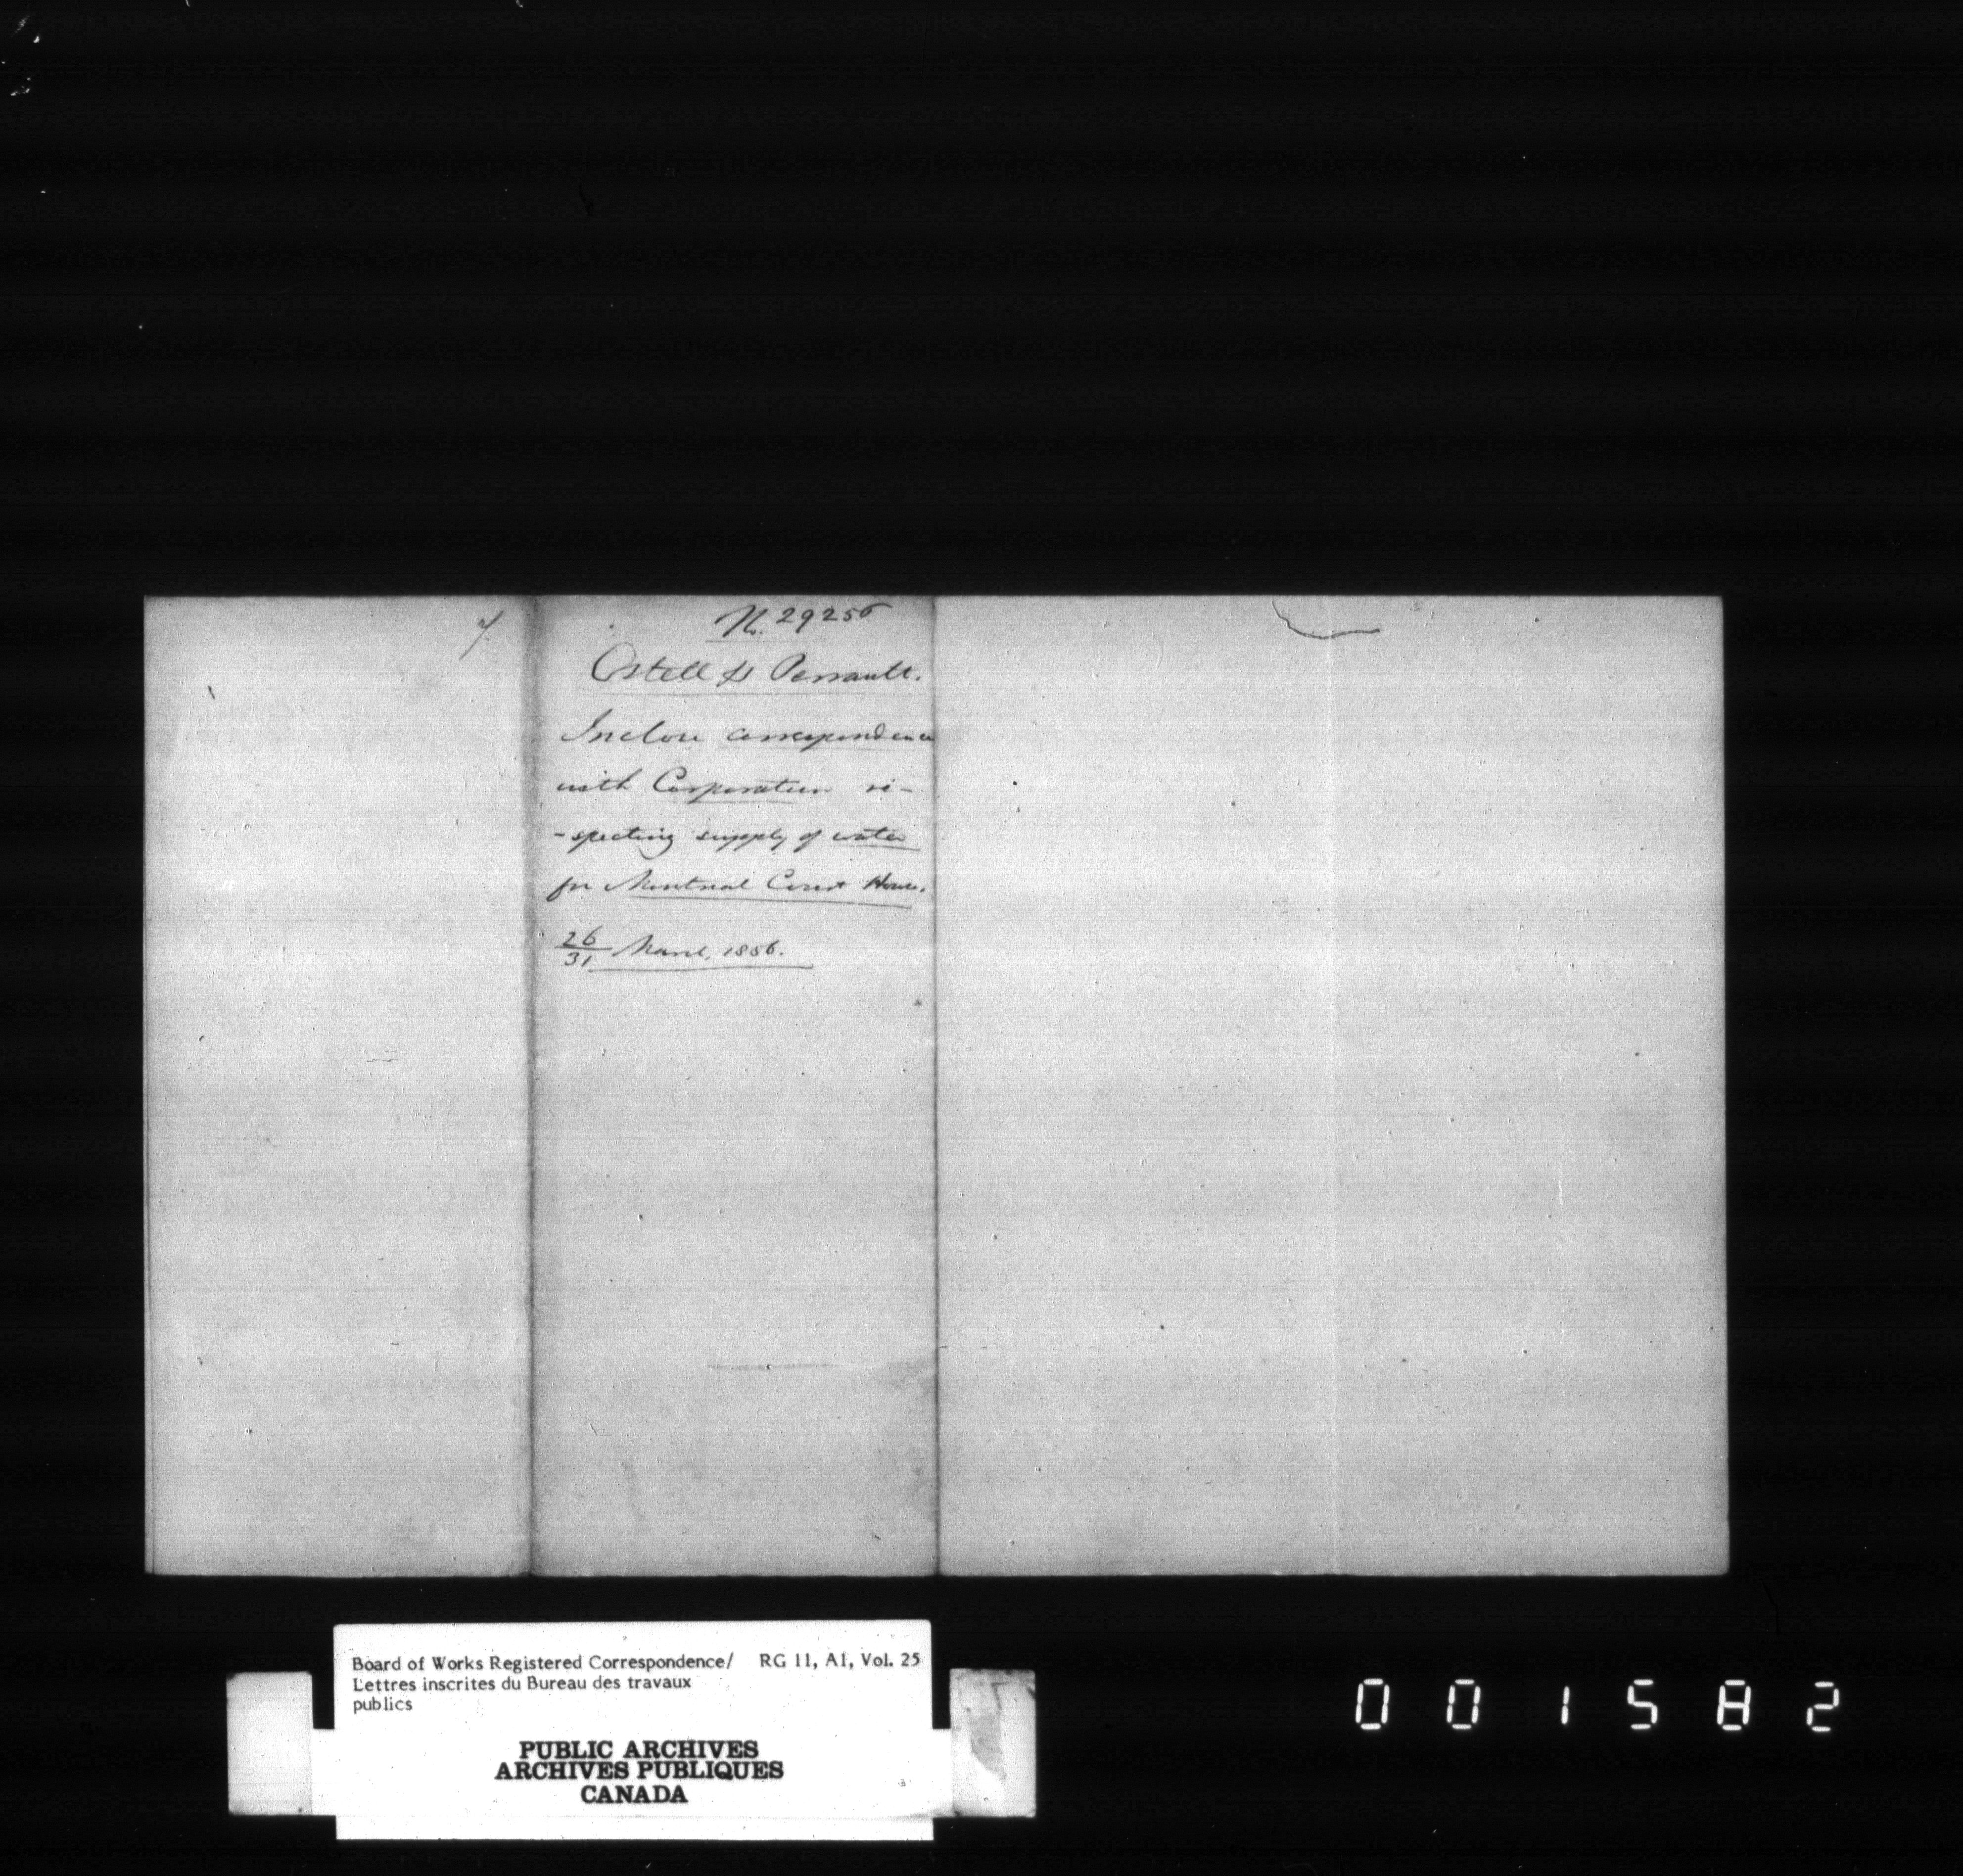 7.
No. 29256
Ostell & Perrault.
Inclose correspondence
with Corporation re-
-specting supply of water
for Montreal Court House.
26/31 March, 1856.
Board of Works Registered Correspondence/ RG 11, A1, Vol. 25
Lettres inscrites du Bureau des travaux
publics
PUBLIC ARCHIVES
ARCHIVES PUBLIQUES
CANADA
001582